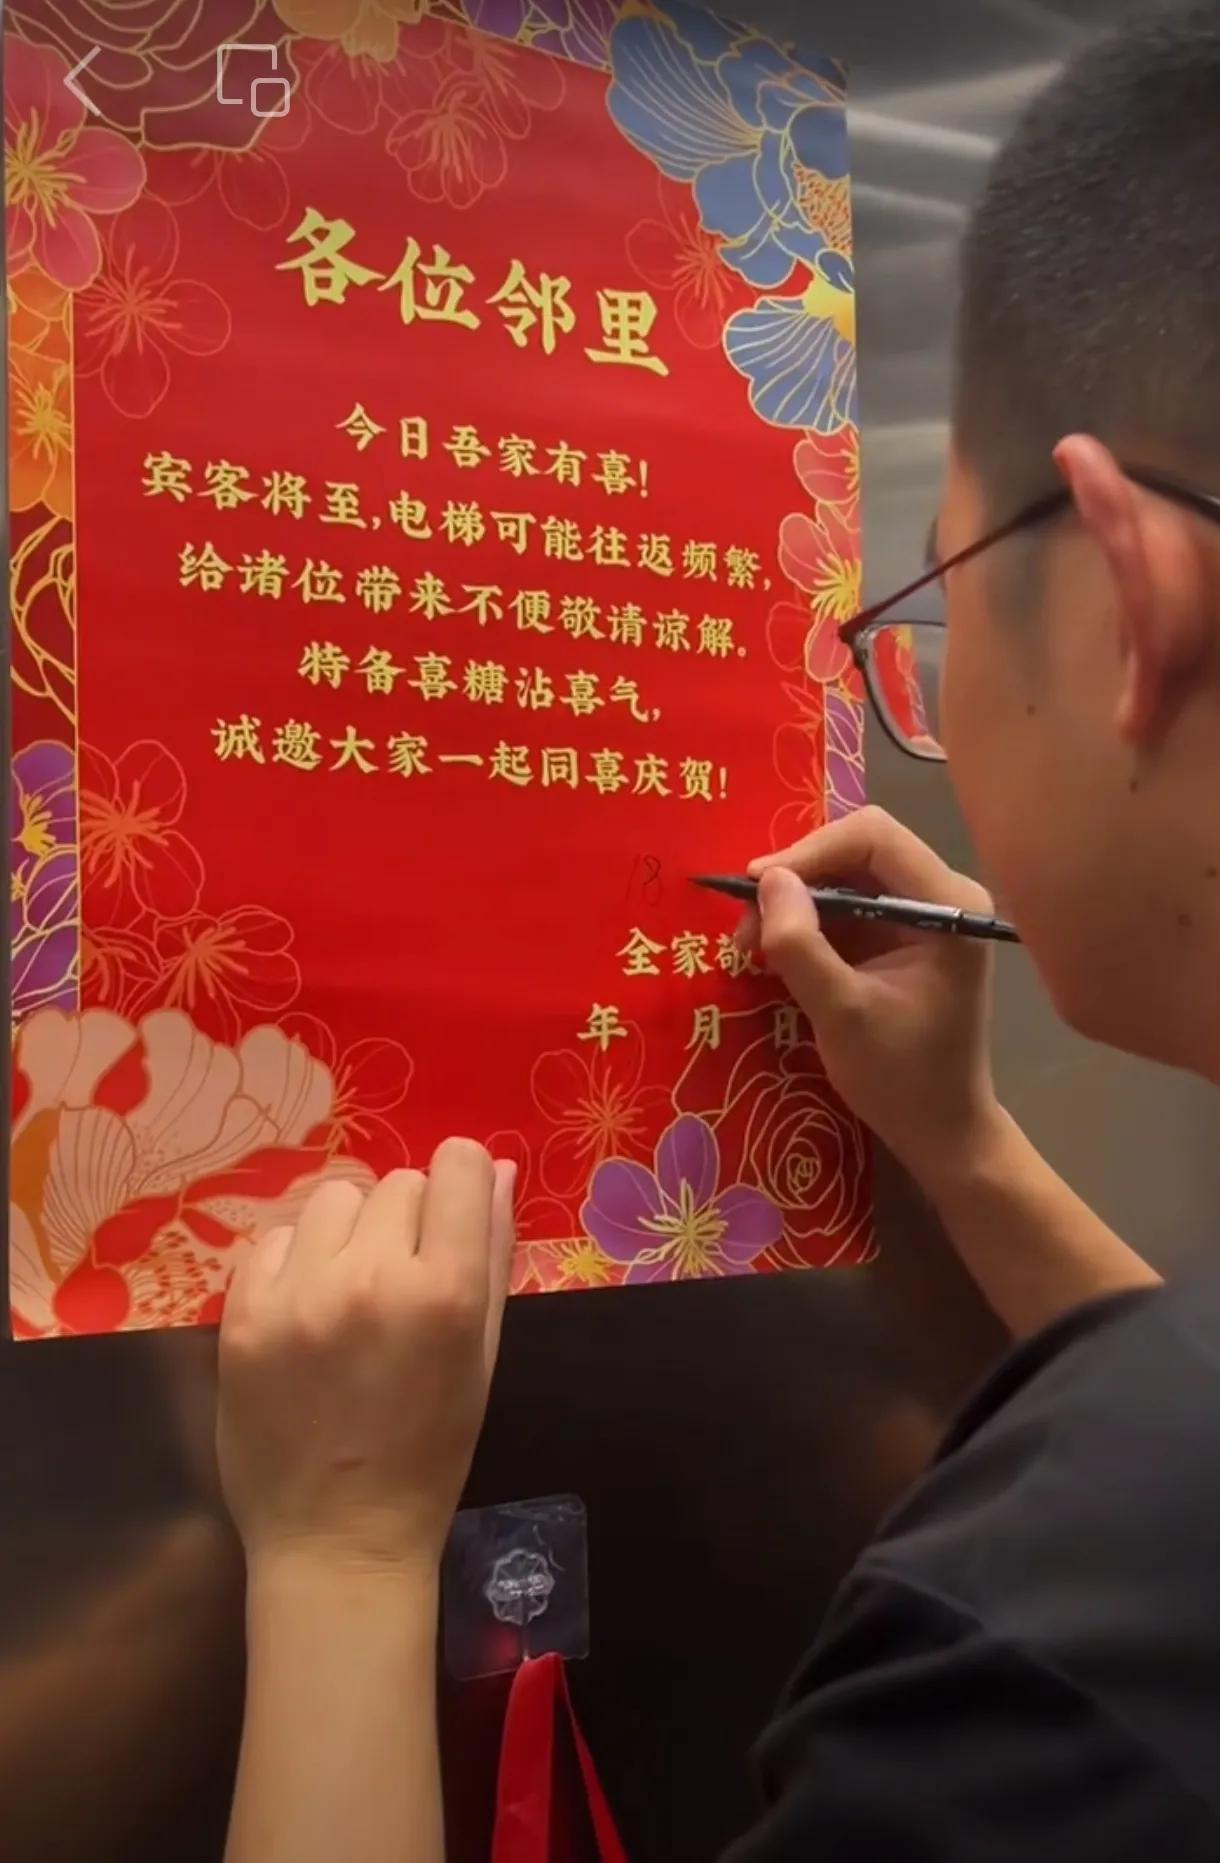 各位邻里
今日吾家有喜!
宾客将至,电梯可能往返频繁,
给诸位带来不便敬请谅解。
特备喜糖沾喜气,
诚邀大家一起同喜庆贺!
18
全家敬
年 月 日